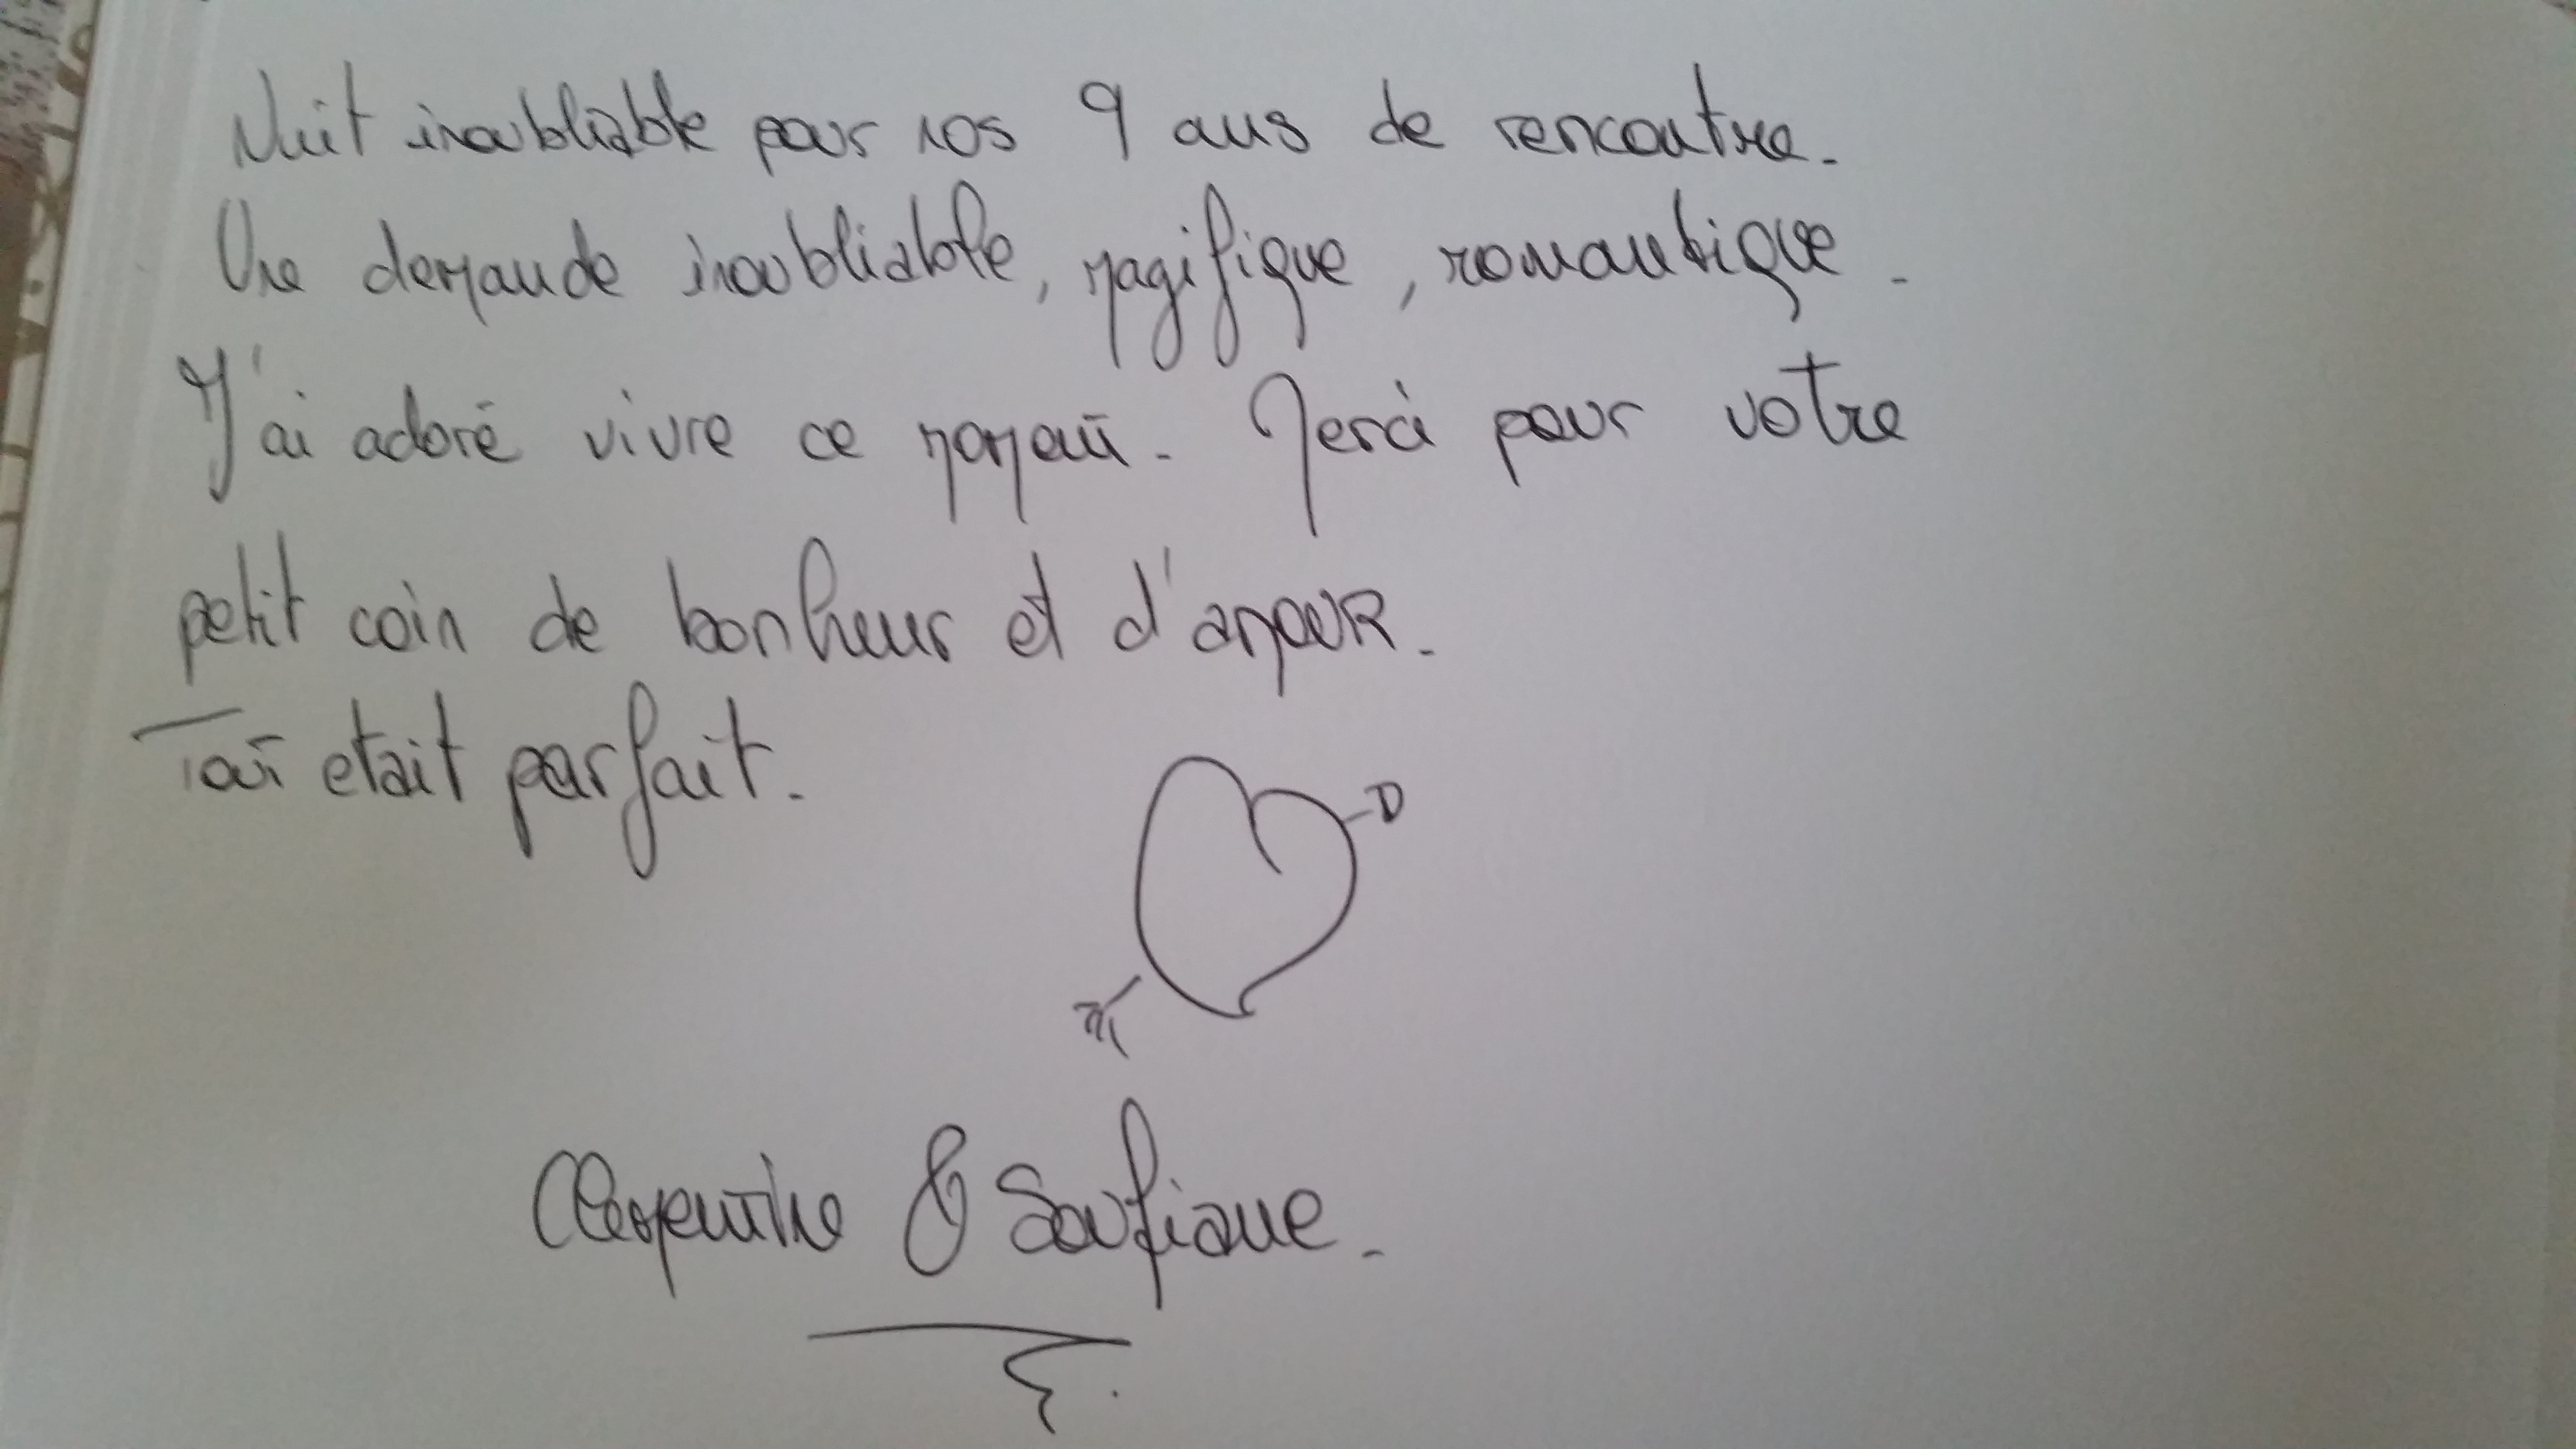 Nuit inoubliable pour nos 9 ans de rencontre.
Une demande inoubliable, magifique, romantique.
J'ai adoré vivre ce moment. Merci pour votre
petit coin de bonheur et d'amour.
Tout etait parfait.
D
Clementine & Soufiane.